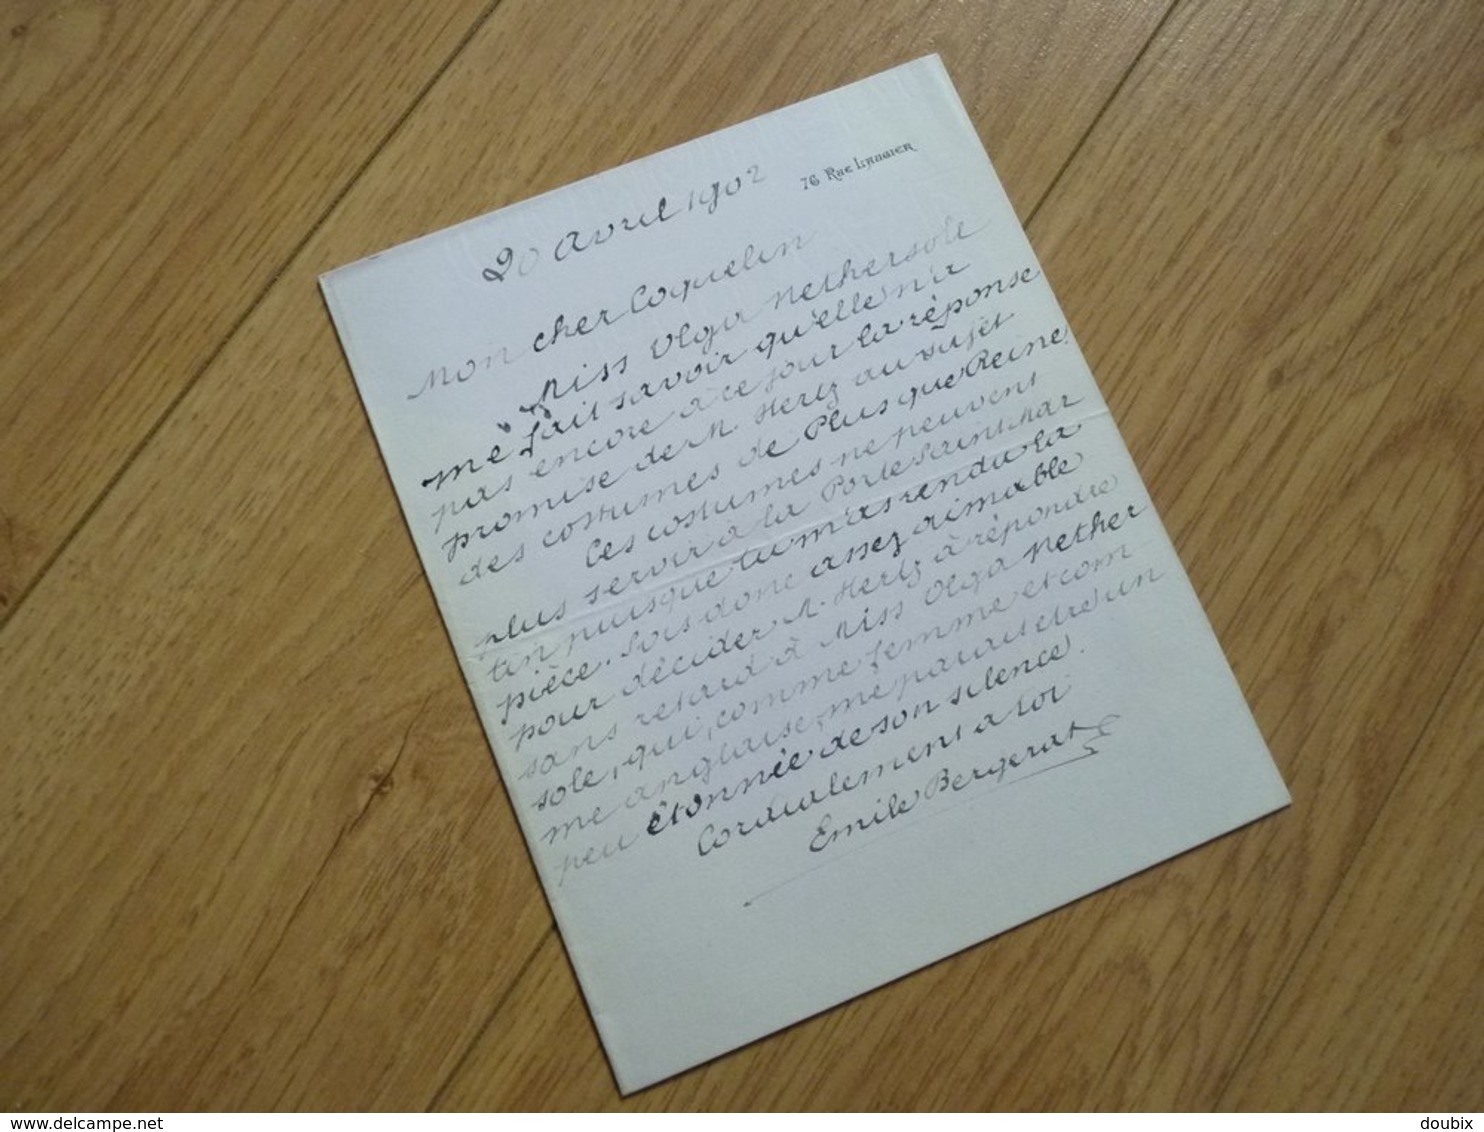 76 Rue Laugier
20 avril 1902
Mon cher Coquelin
Miss Olga Nethersole
me fait savoir qu'elle n'a
pas encore à ce jour la réponse
promise de M. Hertz au sujet
des costumes de Plus que Reine.
Ces costumes ne peuvent
plus servir à la Porte Saint Mar
tin puisque tu m'as rendu la
pièce. Sois donc assez aimable
pour décider M. Hertz à répondre
sans retard à Miss Olga Nether
sole, qui, comme femme et com
me anglaise, me parait etre un
peu étonnée de son silence.
Cordialement a toi
Emile Bergerat
delcampe.net
doubix